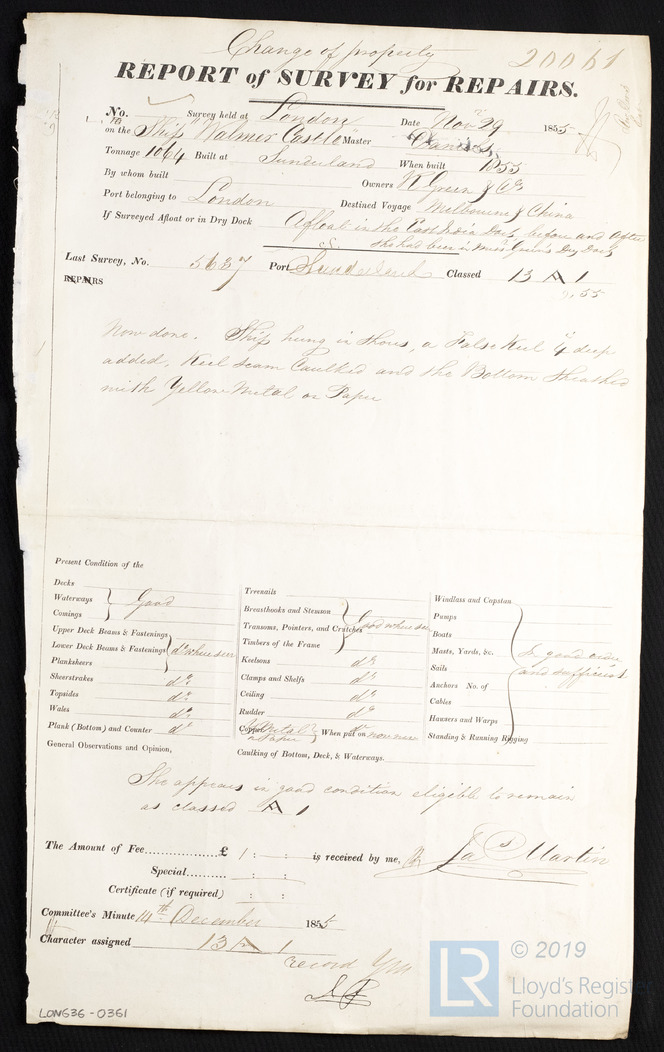 Change of property
20061
REPORT of SURVEY for REPAIRS.
No. Survey held at London Date Nov 29 1855
on the Ship "Walmer Castle" Master Daniels
Tonnage 1064 Built at Sunderland When built 1855
By whom built Owners R Green & Co
Port belonging to London Destined Voyage Melbourne & China
If Surveyed Afloat or in Dry Dock Afloat in the East India Dock before and after
she had been in Messrs Green's Dry Dock
Last Survey, No. 5637 Port Sunderland Classed 13 A 1
REPAIRS 55
Now done. Ship hung in Shores, a False Keel 4 in deep
added, Keel seam Caulked and the Bottom Sheathed
with Yellow Metal on Paper
Present Condition of the
Decks
Waterways
Comings
Good
Upper Deck Beams & Fastenings
Lower Deck Beams & Fastenings
Planksheers
do where seen
Sheerstrakes do
Topsides do
Wales do
Plank (Bottom) and Counter do
General Observations and Opinion,
Treenails
Breasthooks and Stemson
Transoms, Pointers, and Crutches
Timbers of the Frame
Good where seen
Keelsons do
Clamps and Shelfs do
Ceiling do
Rudder do
Copper Y Metal on Paper When put on now new
Caulking of Bottom, Deck, & Waterways.
Windlass and Capstan
Pumps
Boats
Masts, Yards, &c.
Sails
Anchors No. of
Cables
Hausers and Warps
Standing & Running Rigging
In good order
and sufficient
She appears in good condition eligible to remain
as classed A 1
The Amount of Fee £ 1 : : is received by me, Jas Martin
Special : :
Certificate (if required) : :
Committee's Minute 14th December 1855
Character assigned 13 A 1
record YM
LON636-0361
LR
© 2019
Lloyd's Register
Foundation